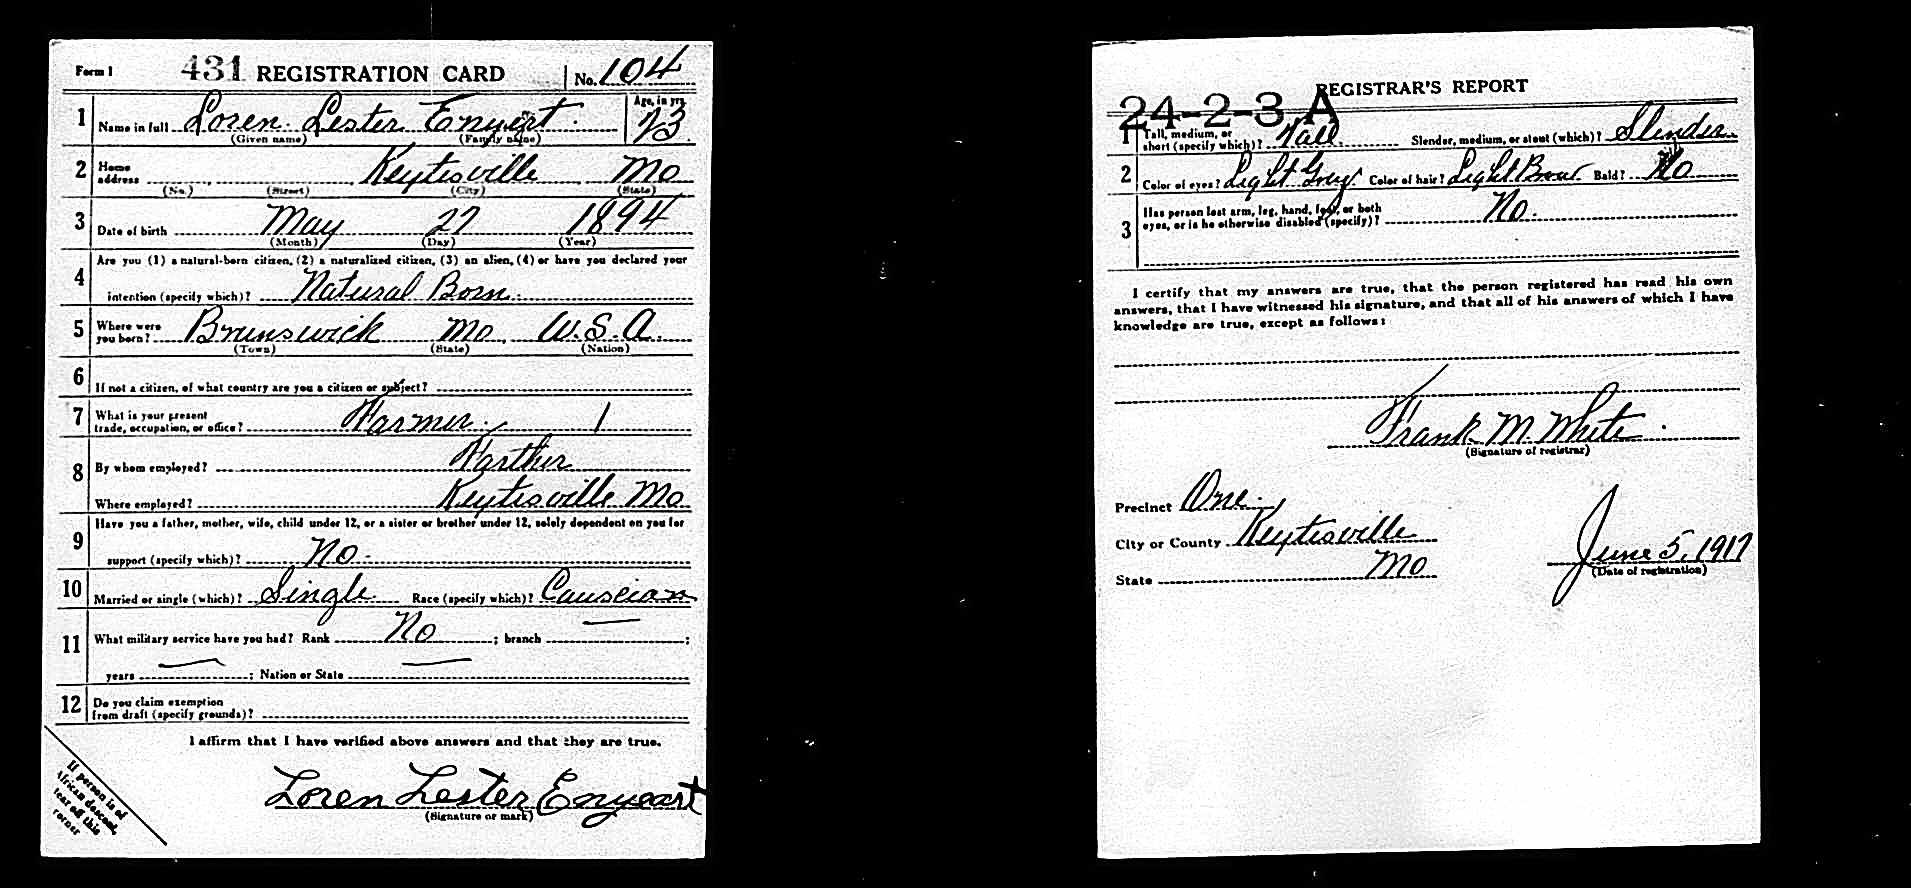 Form 1 431 REGISTRATION CARD No. 104
1 Name in full Loren Lester Enyert Age, in yrs. 23
(Given name) (Family name)
2 Home address Keytesville Mo
(No.) (Street) (City) (State)
3 Date of birth May 27 1894
(Month) (Day) (Year)
4 Are you (1) a natural-born citizen, (2) a naturalized citizen, (3) an alien, (4) or have you declared your
intention (specify which)? Natural Born.
5 Where were you born? Brunswick Mo. U.S.A.
(Town) (State) (Nation)
6 If not a citizen, of what country are you a citizen or subject?
7 What is your present
trade, occupation, or office? Farmer. 1
8 By whom employed? Farther
Where employed? Keytesville Mo
9 Have you a father, mother, wife, child under 12, or a sister or brother under 12, solely dependent on you for
support (specify which)? No.
10 Married or single (which)? Single Race (specify which)? Causcian
11 What military service have you had? Rank No ; branch ;
years ; Nation or State
12 Do you claim exemption
from draft (specify grounds)?
I affirm that I have verified above answers and that they are true.
Loren Lester Enyeart
(Signature or mark)
If person is of
African descent,
tear off this
corner
REGISTRAR'S REPORT
24-2-3 A
1 Tall, medium, or
short (specify which)? Tall Slender, medium, or stout (which)? Slender
2 Color of eyes? Light Grey Color of hair? Light Brow Bald? No
3 Has person lost arm, leg, hand, foot, or both
eyes, or is he otherwise disabled (specify)? No.
I certify that my answers are true, that the person registered has read his own
answers, that I have witnessed his signature, and that all of his answers of which I have
knowledge are true, except as follows:
Frank M. White
(Signature of registrar)
Precinct One.
City or County Keytesville
State Mo
June 5, 1917
(Date of registration)